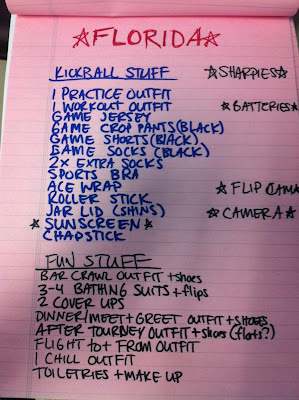 ☆FLORIDA☆
KICKBALL STUFF
☆SHARPIES☆
1 PRACTICE OUTFIT
1 WORKOUT OUTFIT
☆BATTERIES☆
GAME JERSEY
GAME CROP PANTS (BLACK)
GAME SHORTS (BLACK)
GAME SOCKS (BLACK)
2x EXTRA SOCKS
SPORTS BRA
ACE WRAP
☆FLIP CAM☆
ROLLER STICK
JAR LID (SHINS)
☆CAMERA☆
☆SUNSCREEN☆
CHAPSTICK
FUN STUFF
BAR CRAWL OUTFIT + shoes
3-4 BATHING SUITS + flips
2 COVER UPS
DINNER/MEET + GREET OUTFIT + SHOES
AFTER TOURNEY OUTFIT + shoes (flats?)
FLIGHT to + FROM OUTFIT
1 CHILL OUTFIT
TOILETRIES + MAKE UP